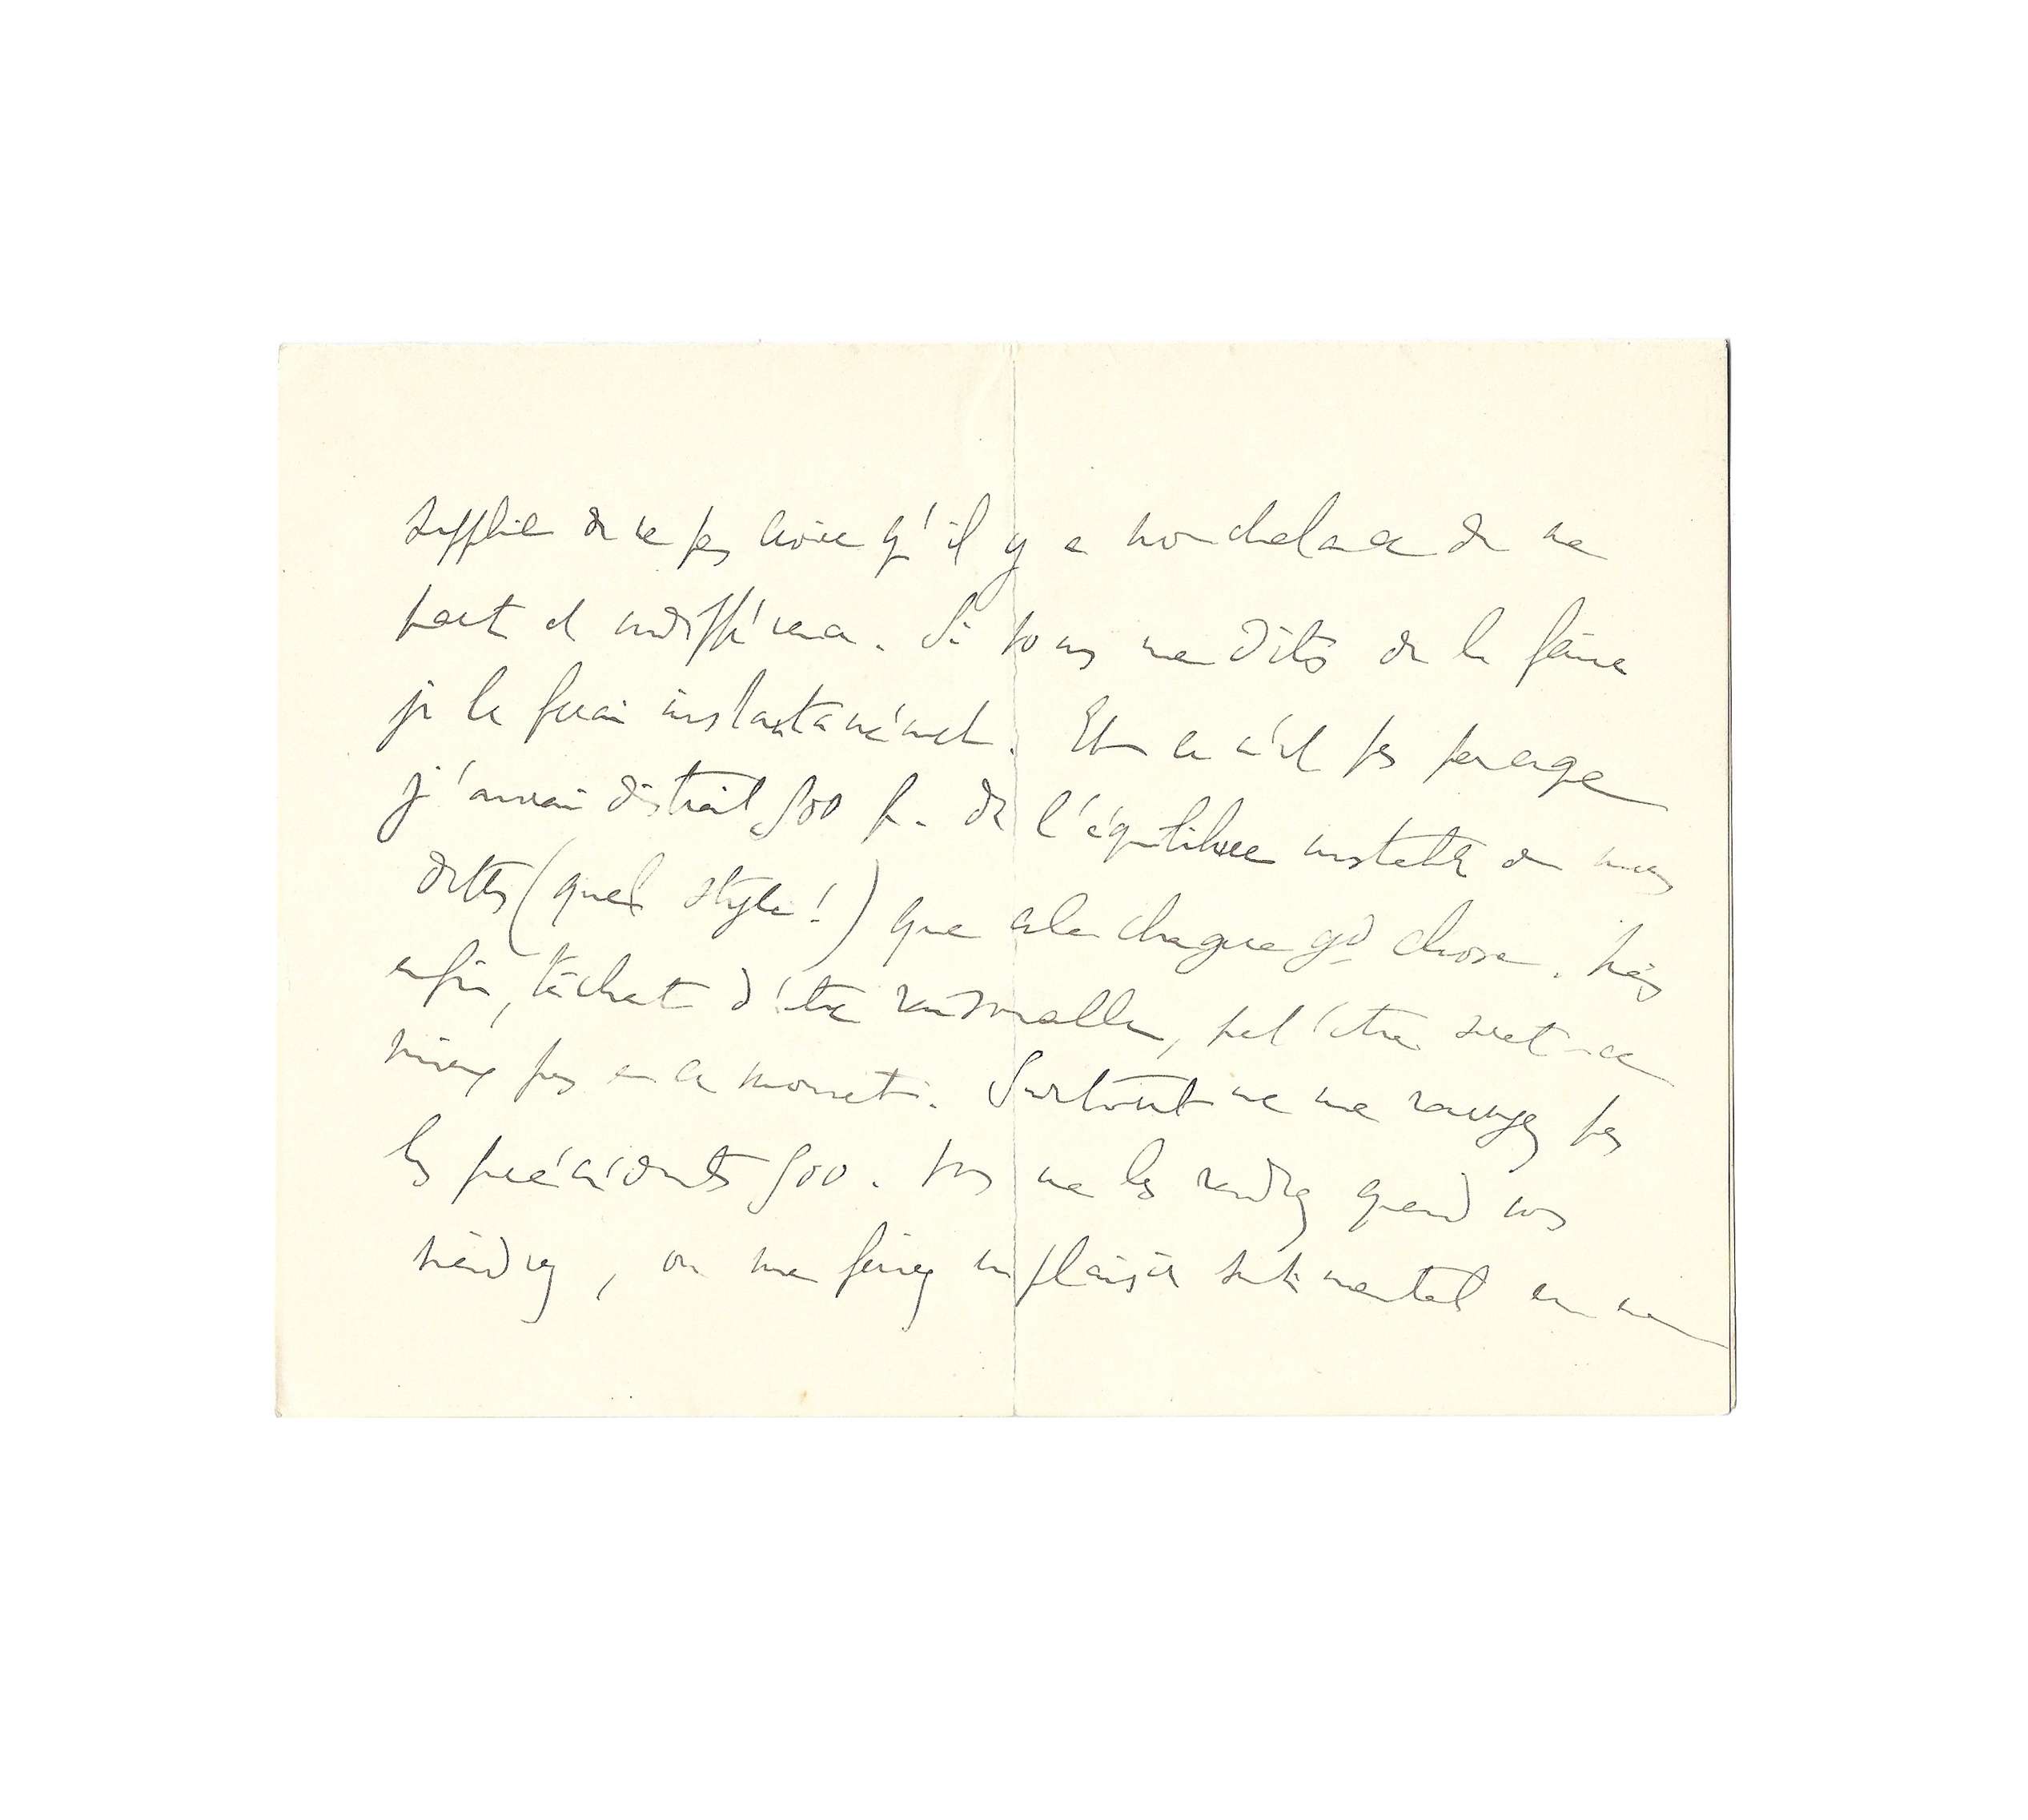 supplie de ne pas croire qu'il y a nonchalance de ma
part et indifférence. Si vous me dites de le faire
je le ferai instantanément. Et ce n'est pas parce que
j'aurai distrait 500 f. de l'équilibre instable de mes
dettes (quel style !) que cela change gd chose. Mais
enfin, tâchant d'être raisonnable, peut'être serait-ce
mieux pas en ce moment. Surtout ne me renvoyez pas
les précédents 500. Vous me les rendrez quand vous
viendrez, ou me ferez un plaisir sentimental en me